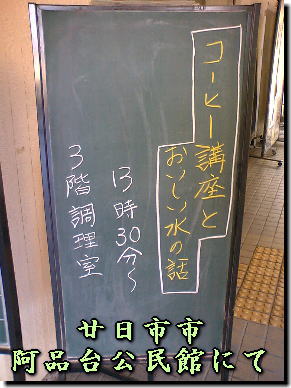 コーヒー講座と
おいしい水の話
13時30分~
3階調理室
廿日市市
阿品台公民館にて